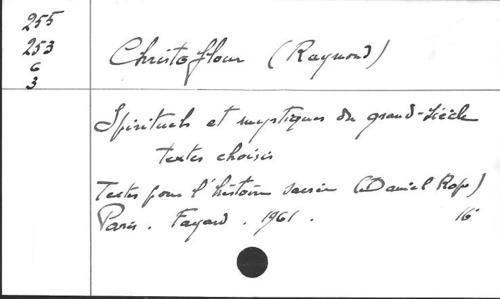 255
253
6
3
Christoflour (Raymond)
Spirituels et mystiques du grand-siècle
textes choisis
Textes pour l'histoire sacrée (Daniel Rops)
Paris. Fayard. 1961. 16°